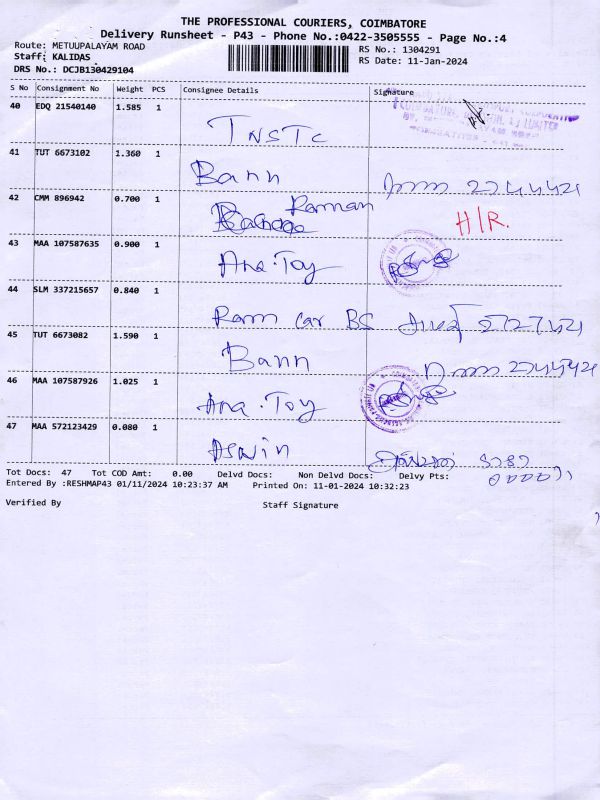 THE PROFESSIONAL COURIERS, COIMBATORE
Delivery Runsheet - P43 - Phone No.:0422-3505555 - Page No.:4
Route: METUUPALAYAM ROAD
RS No.: 1304291
Staff: KALIDAS
RS Date: 11-Jan-2024
DRS No.: DCJB130429104
S No Consignment No Weight PCS Consignee Details Signature
40 EDQ 21540140 1.585 1
TNSTC
41 TUT 6673102 1.360 1
Bann
42 CMM 896942 0.700 1
Raman
H/R.
43 MAA 107587635 0.900 1
Ana.Toy
44 SLM 337215657 0.840 1
Ram Car BS
45 TUT 6673082 1.590 1
Bann
46 MAA 107587926 1.025 1
Ana.Toy
47 MAA 572123429 0.080 1
Aswin
Tot Docs: 47 Tot COD Amt: 0.00 Delvd Docs: Non Delvd Docs: Delvy Pts:
Entered By :RESHMAP43 01/11/2024 10:23:37 AM Printed On: 11-01-2024 10:32:23
Verified By Staff Signature